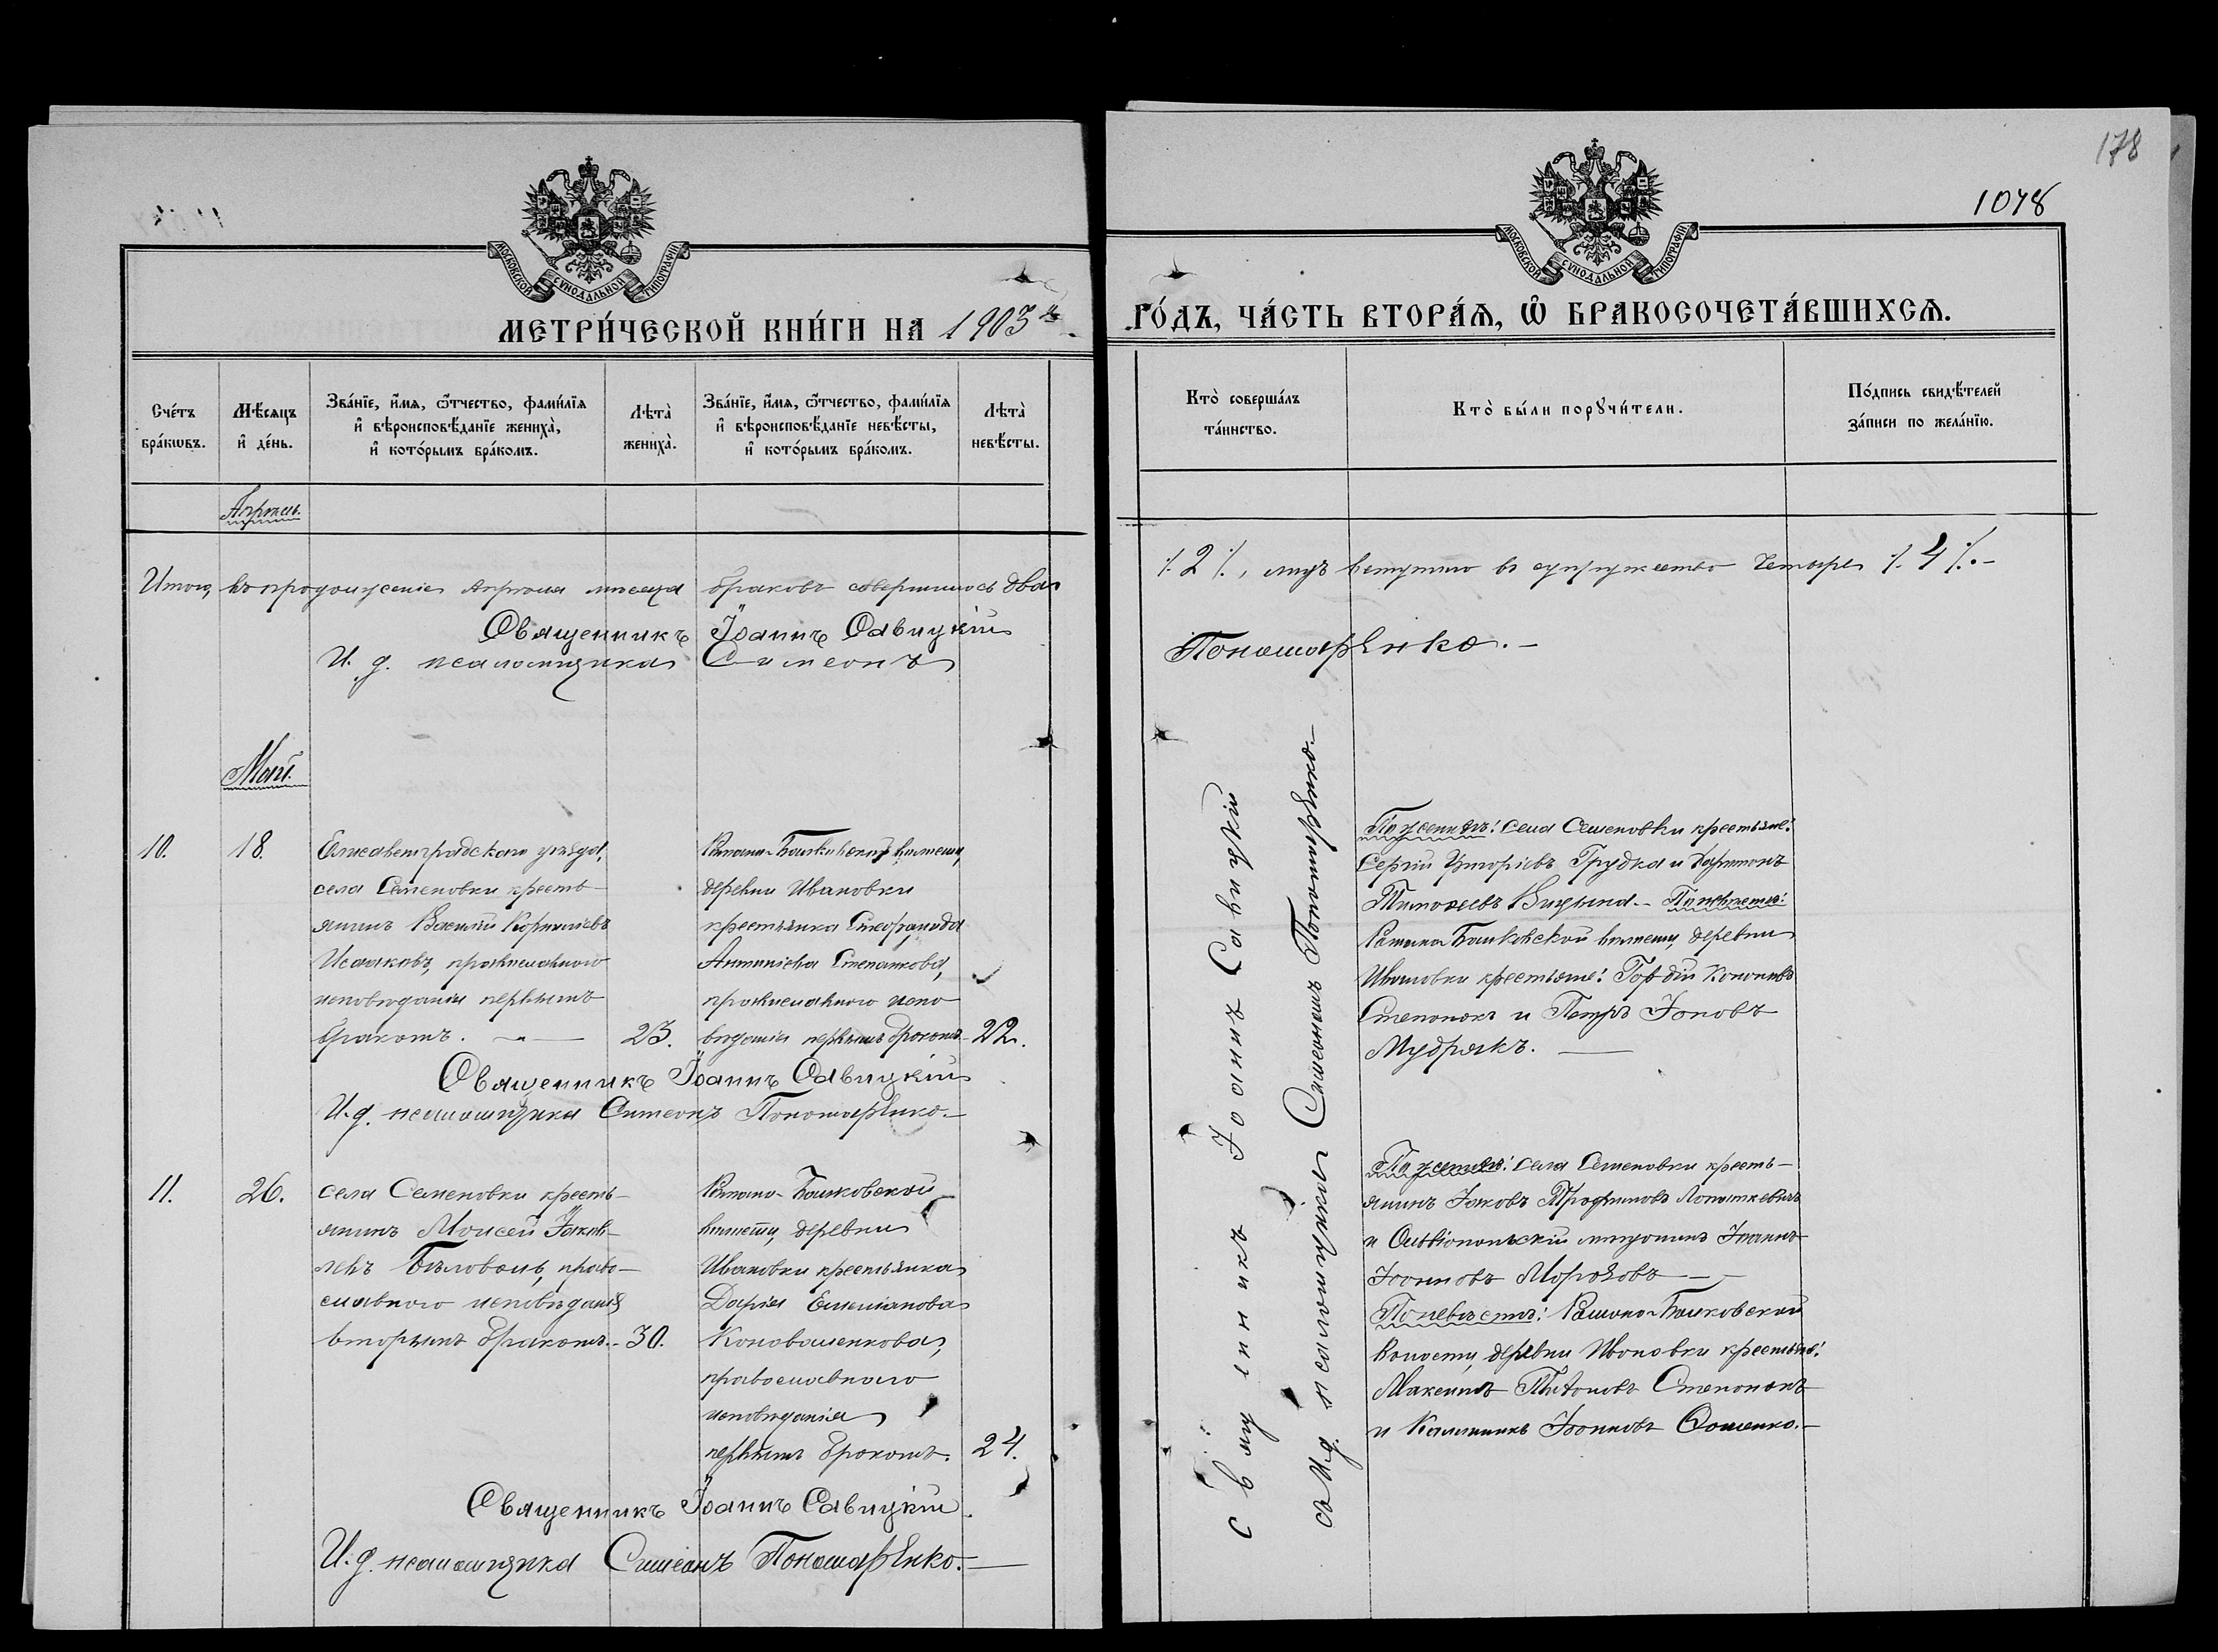 178
1078
МОСКОВСКОЙ СѴНОДАЛЬНОЙ ТИПОГРАФІИ
МОСКОВСКОЙ СѴНОДАЛЬНОЙ ТИПОГРАФІИ
МЕТРИ́ЧЕСКОЙ КНИ́ГИ НА 1903й
ГО́ДЪ, ЧА́СТЬ ВТОРА́Ѧ, Ѽ БРАКОСОЧЕТА́ВШИХСѦ.
Сче́тъ бра́кѡвъ.
Мѣ́сяцъ и҆ де́нь.
Зва́нїе, и҆́мѧ, ѻ҆́тчество, фами́лїѧ и҆ вѣроисповѣ́данїе жениха̀, и҆ кото́рымъ бра́комъ.
Лѣта̀ жениха̀.
Зва́нїе, и҆́мѧ, ѻ҆́тчество, фами́лїѧ и҆ вѣроисповѣ́данїе невѣ́сты, и҆ кото́рымъ бра́комъ.
Лѣта̀ невѣ́сты.
Кто̀ соверша́лъ та́инство.
Кто̀ бы́ли порꙋчи́тели.
По́дпись свидѣ́телей за́писи по жела́нїю.
Апрель.
Итого, въ продолженіе Апреля месяца браковъ совершилось два
⁒ 2 ⁒, лицъ вступило въ супружество четыре ⁒ 4 ⁒. –
Священникъ Іоаннъ Савицкій
И. д. псаломщика Симеонъ
Пономаренко. –
Май.
10.
18.
Елисаветградскаго уезда,
села Семеновки кресть-
янинъ Василій Корниліевъ
Исааковъ, православного
исповеданія первымъ
бракомъ. —
23.
Романо-Балковской волости,
деревни Ивановки
крестьянка Стефанида
Антониева Степанкова,
православного испо
веданія первымъ бракомъ.
22.
Священникъ Іоаннъ Савицкій
И. д. псаломщика Симеонъ Пономаренко. –
По женихе: села Семеновки крестьяне:
Сергій Григоріевъ Грудка и Харитонъ
Тимофеевъ – По невесте:
Романо-Балковской волости, деревни
Ивановки крестьяне: Гордій Кононовъ
Степанокъ и Петръ Іоновъ
Мудрякъ. —
11.
26.
села Семеновки кресть-
янинъ Моисей Іаков-
левъ Беловолъ, право-
славного исповеданія
вторымъ бракомъ. –
30.
Романо-Балковской
волости, деревни
Ивановки крестьянка
Дарія Емеліанова
Коноваленкова,
православного
исповеданія
первымъ бракомъ.
24.
Священникъ Іоаннъ Савицкій.
И. д. псаломщика Симеонъ Пономаренко. —
По женихе: села Семеновки кресть-
янинъ Іаковъ Трофимовъ Лопаткевичъ
и Ольвіопольскій мещанинъ Іоаннъ
Іоанновъ Морозовъ —
По невесте: Романо-Балковской
волости, деревни Ивановки крестьяне:
Максимъ Титовъ Степанокъ
и Калинникъ Іоанновъ –
Священникъ Іоаннъ Савицкій
съ И. д. псаломщика Симеономъ Пономаренко. –